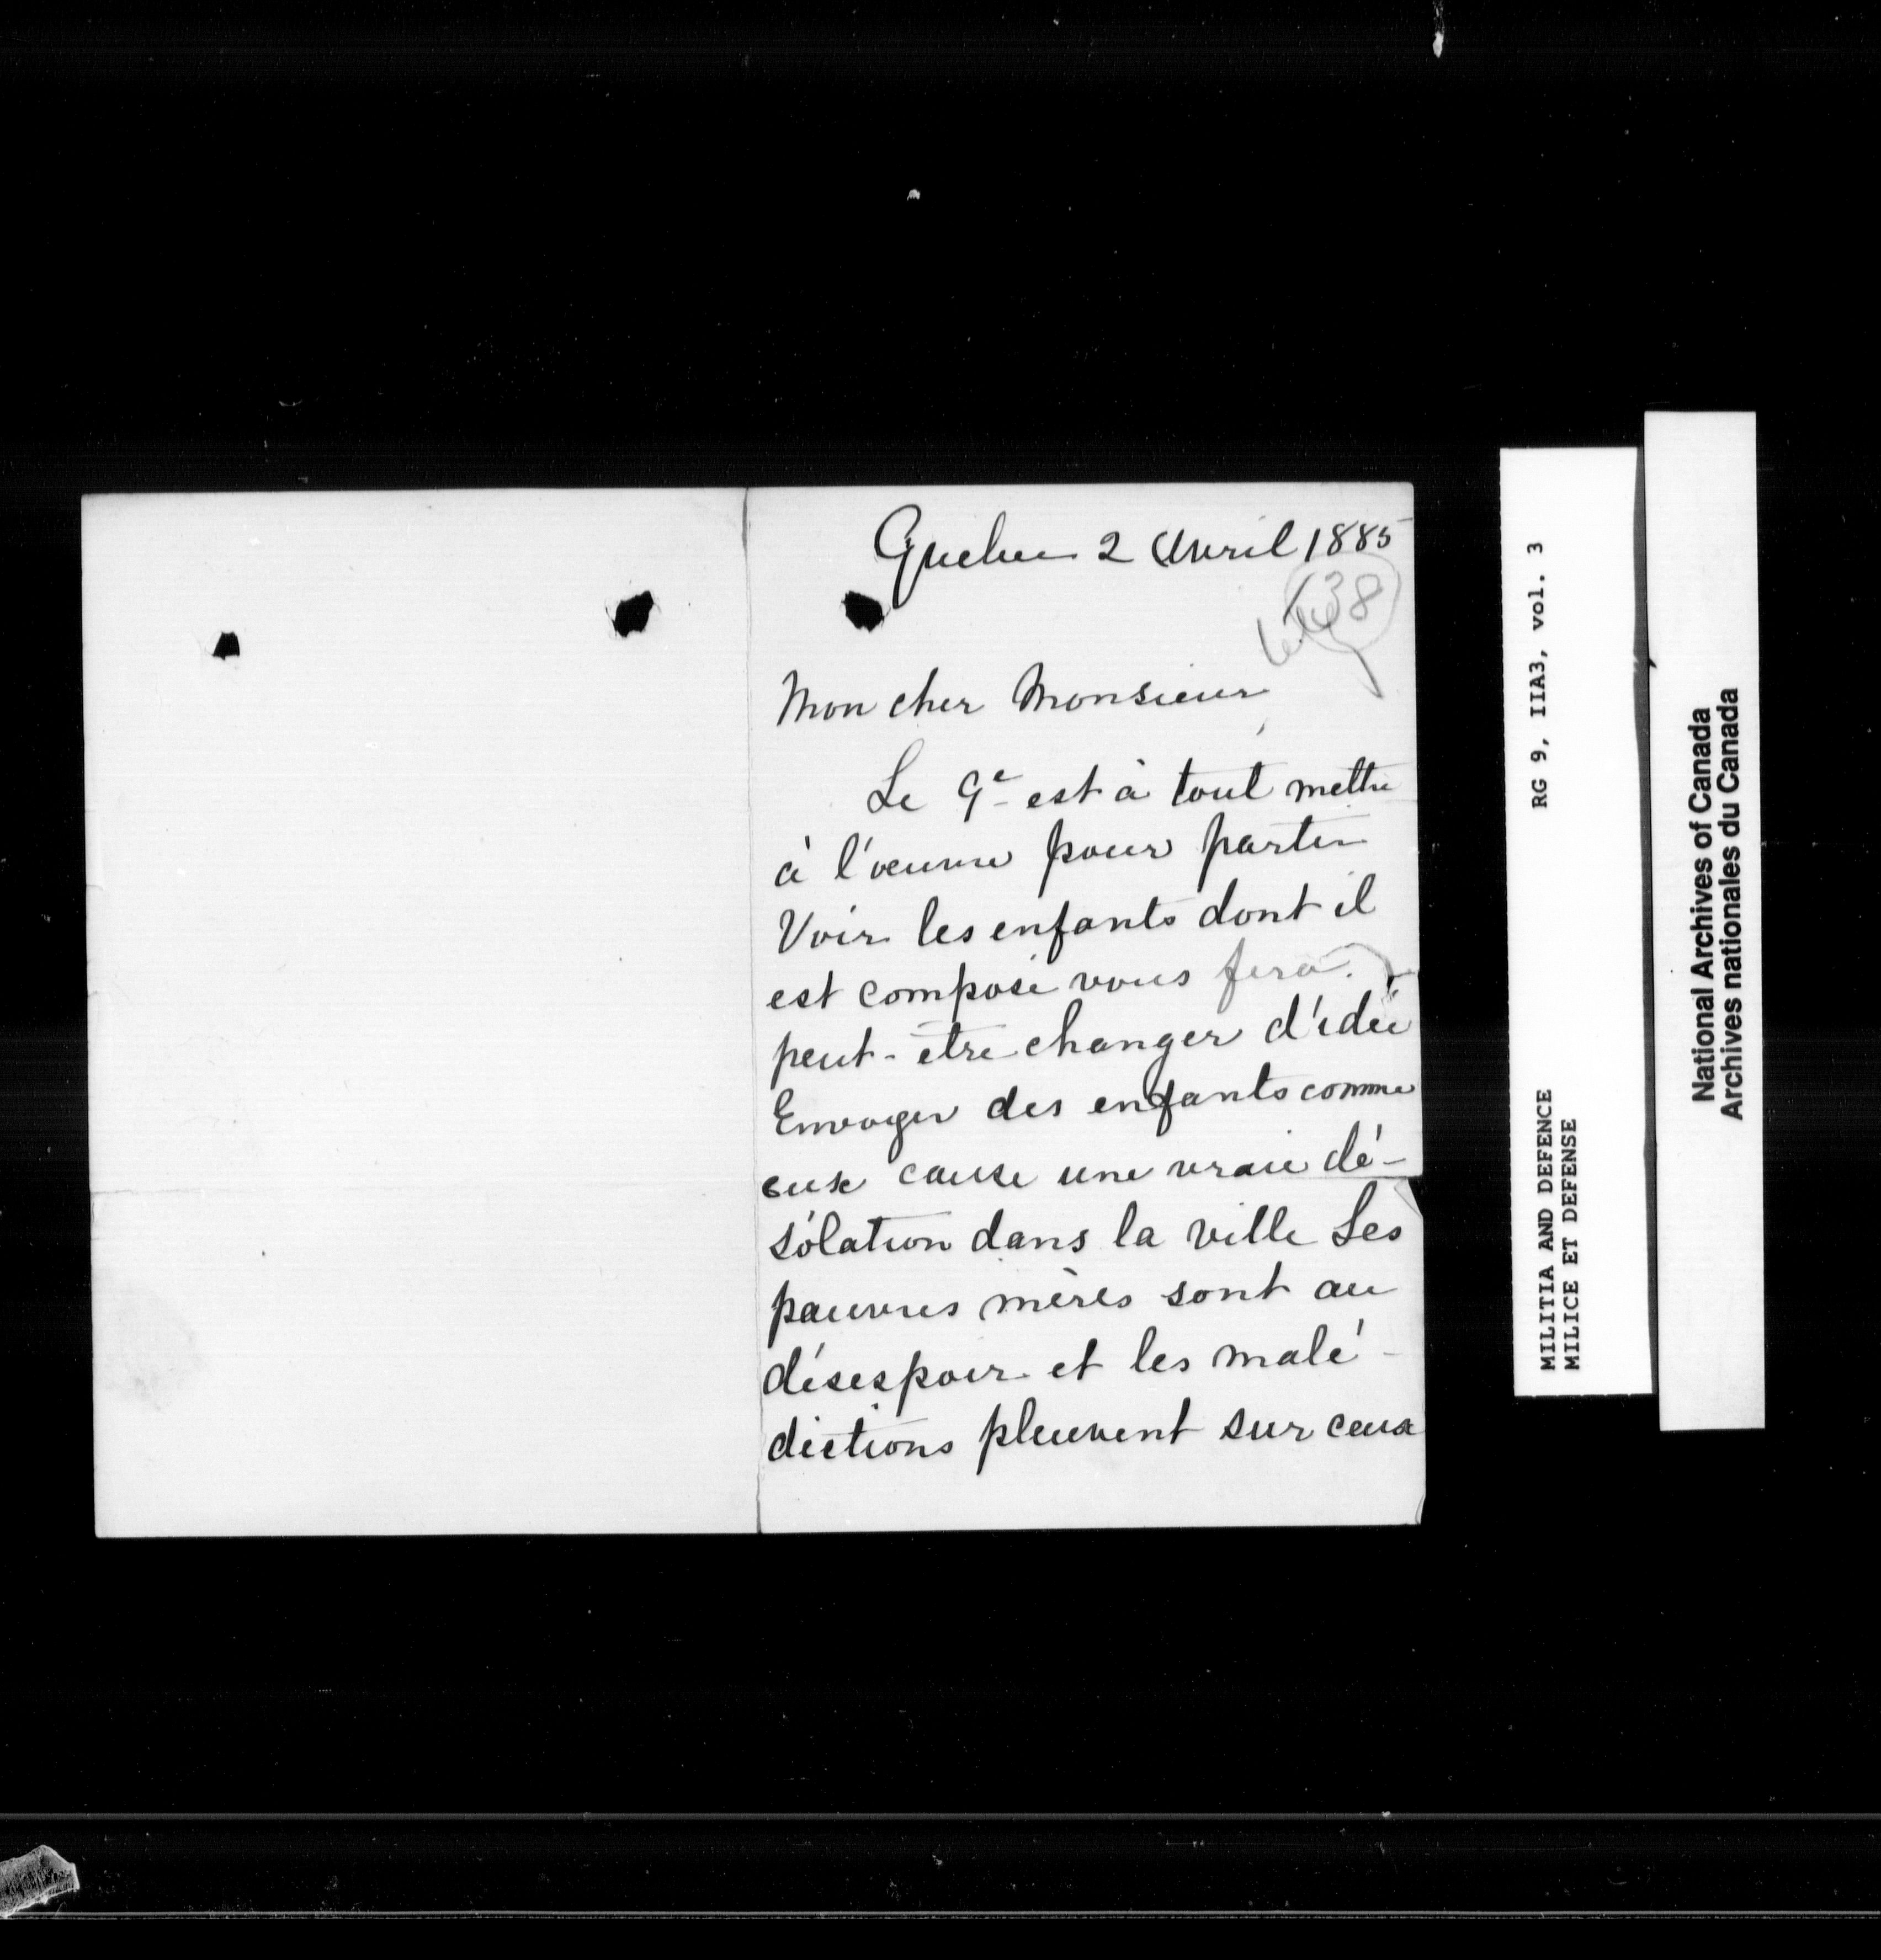 Quebec 2 Avril 1885
138
Mon cher Monsieur,
Le 9e est à tout mettre
à l'oeuvre pour partir
Voir les enfants dont il
est composé vous fera
peut-être changer d'idée
Envoyer des enfants comme
eux cause une vraie dé-
solation dans la ville Les
pauvres mères sont au
désespoir et les malé-
dictions pleuvent sur ceux
MILITIA AND DEFENCE RG 9, IIA3, vol. 3
MILICE ET DEFENSE
National Archives of Canada
Archives nationales du Canada